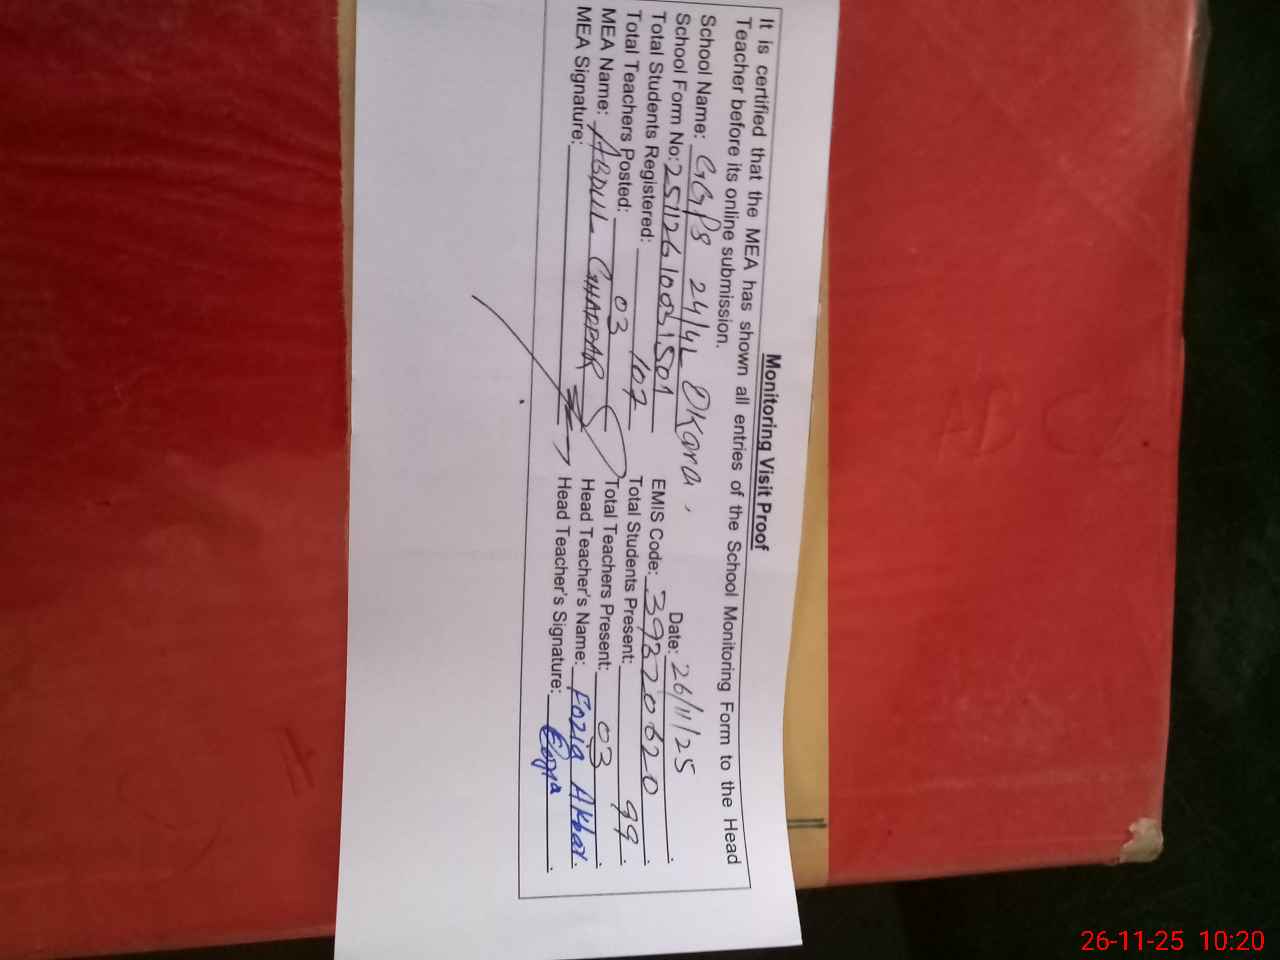 Monitoring Visit Proof
It is certified that the MEA has shown all entries of the School Monitoring Form to the Head
Teacher before its online submission.
School Name: GGPS 24/4L Okara. Date: 26/11/25
School Form No: 25112610031501 EMIS Code: 39320620
Total Students Registered: 107 Total Students Present: 99
Total Teachers Posted: 03 Total Teachers Present: 03
MEA Name: ABDUL GHAFFAR Head Teacher's Name: Fozia Akbar.
MEA Signature: Head Teacher's Signature: Fozia
26-11-25 10:20